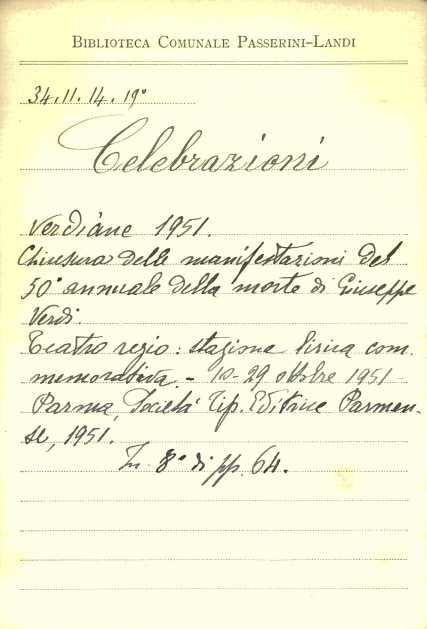 BIBLIOTECA COMUNALE PASSERINI-LANDI
34.11.14.19°
Celebrazioni
Verdiane 1951.
Chiusura delle manifestazioni del
50° annuale della morte di Giuseppe
Verdi.
Teatro regio: stagione lirica com.
memorativa. - 10-29 ottobre 1951-
Parma, Società Tip. Editrice Parmen-
se, 1951.
In. 8° di pp. 64.